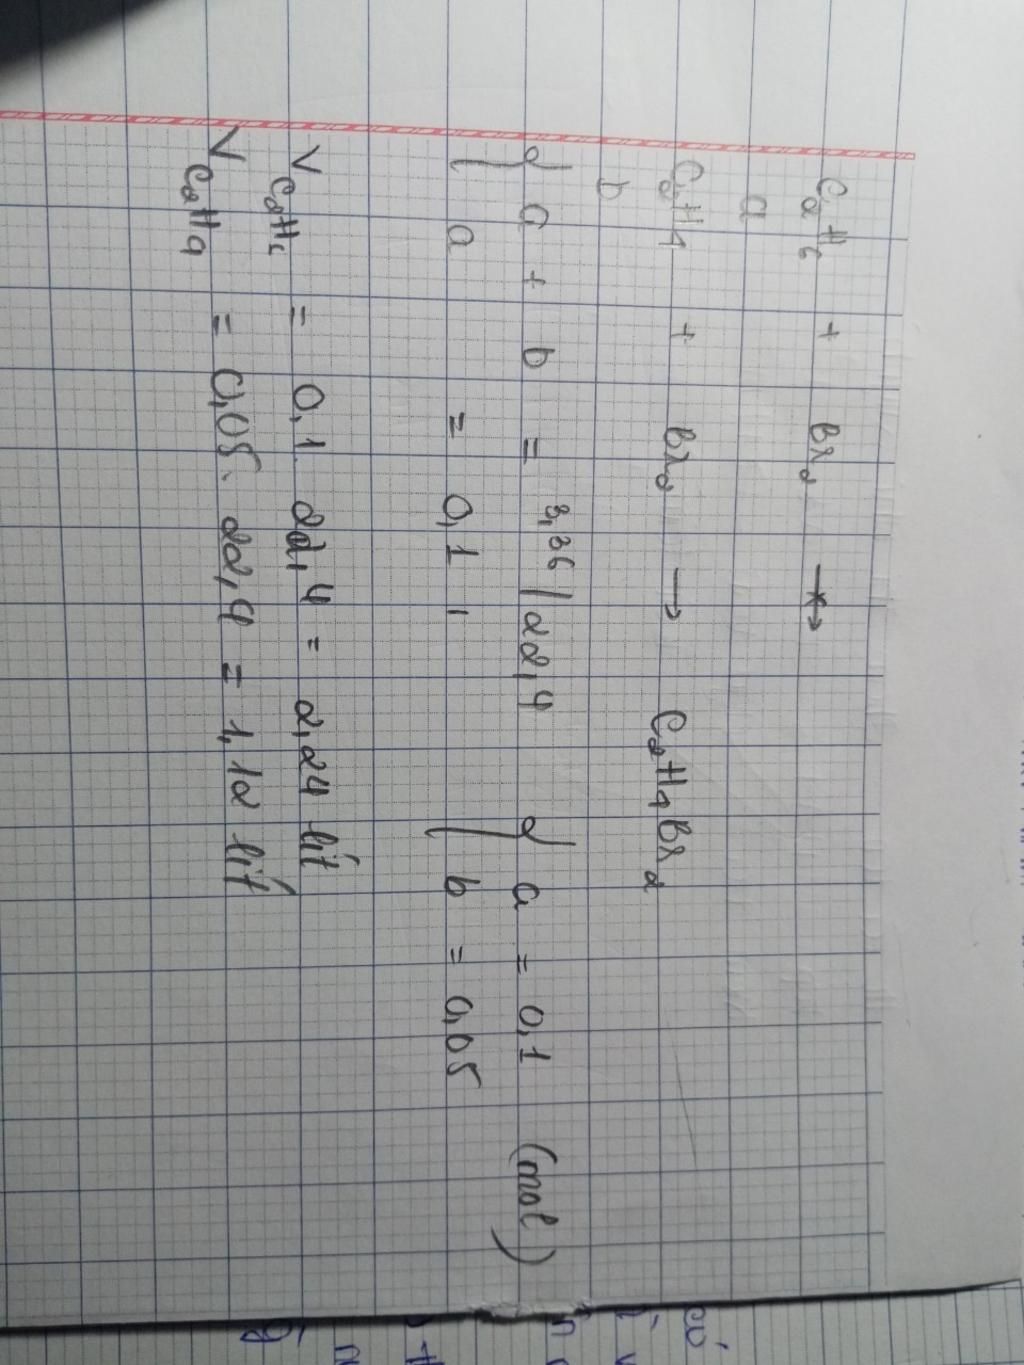 C₂H₆ + Br₂ ↛
a
C₂H₄ + Br₂ → C₂H₄Br₂
b
{ a + b = 3,36/22,4 { a = 0,1 (mol)
{ a = 0,1 , { b = 0,05
V C₂H₆ = 0,1. 22,4 = 2,24 lít
V C₂H₄ = 0,05. 22,4 = 1,12 lít